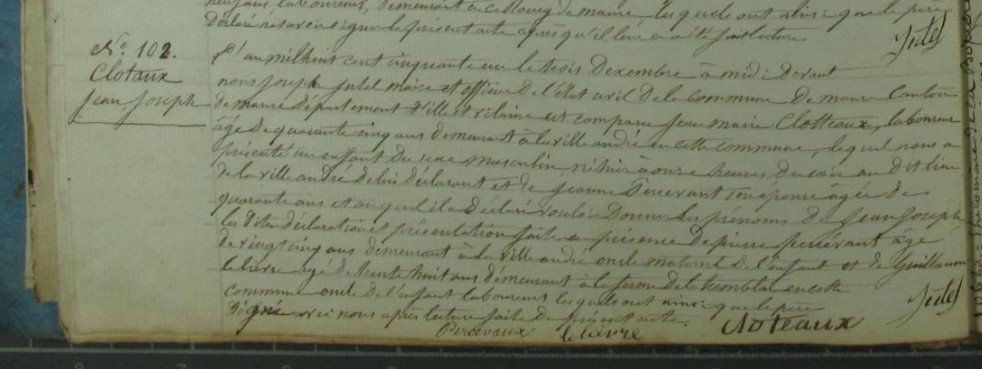 laboureurs, demeurant en ce Bourg de maure, lesquels ont ainsi que le père
Déclaré ne savoir signer le présent acte après qu'il leur en a été fait lecture
Jutel
No. 102.
Clotaux
Jean Joseph
L'an mil huit cent cinquante un le trois Decembre à midi Devant
nous Joseph Jutel maire et officier De l'Etat civil De la Commune De maure Canton
de maure Département d'Ille et vilaine est comparu Jean marie Clotteaux, laboureur
âgé De quarante cinq ans demeurant à la ville andré en cette commune, lequel nous a
présenté un enfant Du sexe masculin, né hier à onze heures Du soir au Dit lieu
de la ville andré De lui Déclarant et de Jeanne Percevant son épouse âgée de
quarante ans et auquel il a Déclaré vouloir Donner les prénoms De Jean Joseph,
les Dites Déclaration et présentation faites en présence De pierre percevant âgé
de vingt cinq ans demeurant à la ville andré oncle maternel De l'enfant et de Guillaume
le lievre âgé de trente huit ans demeurant à la ferme de la en cette
commune oncle De l'enfant laboureurs lesquels ont ainsi que le père
Signé avec nous après lecture faite Du présent acte.
Jutel
Percevaux le lièvre Cloteaux